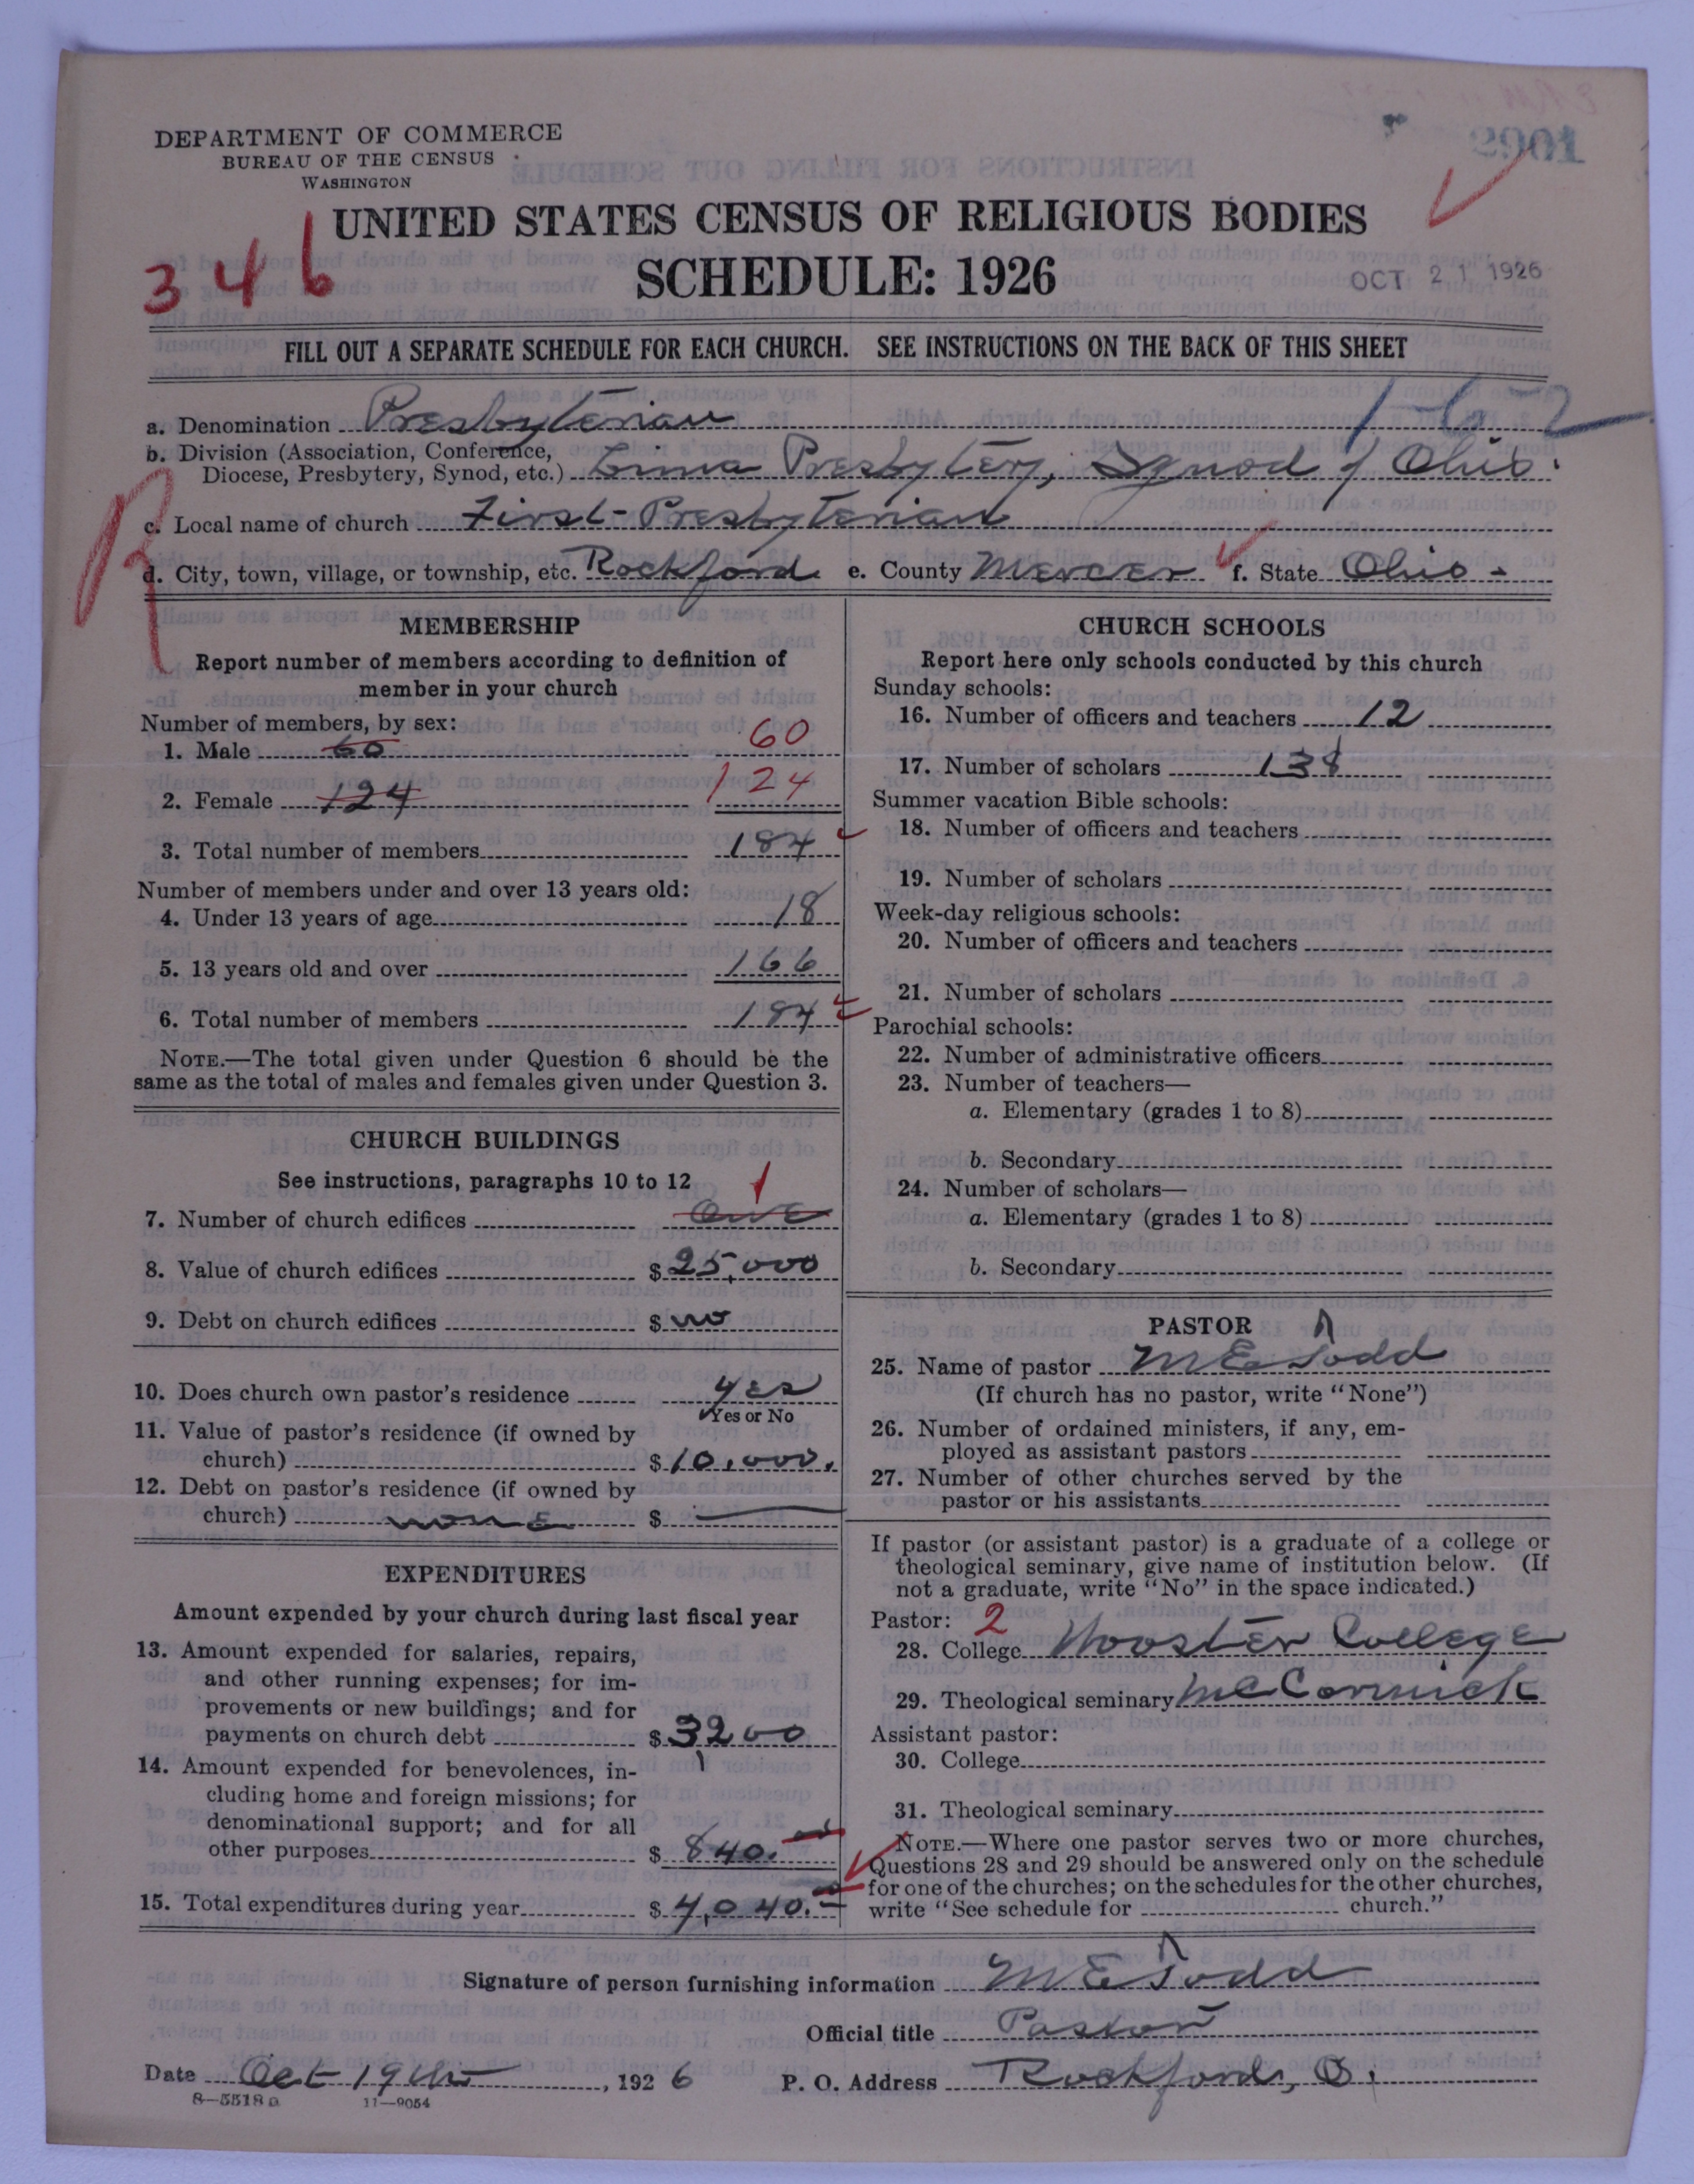 DEPARTMENT OF COMMERCE
BUREAU OF THE CENSUS
WASHINGTON
UNITED STATES CENSUS OF RELIGIOUS BODIES
346
SCHEDULE: 1926
OCT 21 1926
FILL OUT A SEPARATE SCHEDULE FOR EACH CHURCH. SEE INSTRUCTIONS ON THE BACK OF THIS SHEET
1-6-2
a. Denomination Presbyterian
b. Division (Association, Conference,
Diocese, Presbytery, Synod, etc.) Lima Presbytery, Synod of Ohio.
c. Local name of church First-Presbyterian
d. City, town, village, or township, etc. Rockford e. County Mercer f. State Ohio -
MEMBERSHIP
Report number of members according to definition of
member in your church
Number of members, by sex:
1. Male 60 60
2. Female 124 124
3. Total number of members 184
Number of members under and over 13 years old:
4. Under 13 years of age 18
5. 13 years old and over 166
6. Total number of members 184
NOTE.—The total given under Question 6 should be the
same as the total of males and females given under Question 3.
CHURCH BUILDINGS
See instructions, paragraphs 10 to 12
7. Number of church edifices One 1
8. Value of church edifices $ 25,000
9. Debt on church edifices $ no
10. Does church own pastor's residence yes
Yes or No
11. Value of pastor's residence (if owned by
church) $ 10,000.
12. Debt on pastor's residence (if owned by
church) none $ —
EXPENDITURES
Amount expended by your church during last fiscal year
13. Amount expended for salaries, repairs,
and other running expenses; for im-
provements or new buildings; and for
payments on church debt $ 3200
14. Amount expended for benevolences, in-
cluding home and foreign missions; for
denominational support; and for all
other purposes $ 840.
15. Total expenditures during year $ 4,040.
CHURCH SCHOOLS
Report here only schools conducted by this church
Sunday schools:
16. Number of officers and teachers 12
17. Number of scholars 138
Summer vacation Bible schools:
18. Number of officers and teachers
19. Number of scholars
Week-day religious schools:
20. Number of officers and teachers
21. Number of scholars
Parochial schools:
22. Number of administrative officers
23. Number of teachers—
a. Elementary (grades 1 to 8)
b. Secondary
24. Number of scholars—
a. Elementary (grades 1 to 8)
b. Secondary
PASTOR
25. Name of pastor M E Todd
(If church has no pastor, write "None")
26. Number of ordained ministers, if any, em-
ployed as assistant pastors
27. Number of other churches served by the
pastor or his assistants
If pastor (or assistant pastor) is a graduate of a college or
theological seminary, give name of institution below. (If
not a graduate, write "No" in the space indicated.)
Pastor: 2
28. College Wooster College
29. Theological seminary McCormick
Assistant pastor:
30. College
31. Theological seminary
NOTE.—Where one pastor serves two or more churches,
Questions 28 and 29 should be answered only on the schedule
for one of the churches; on the schedules for the other churches,
write "See schedule for church."
Signature of person furnishing information M E Todd
Official title Pastor
Date Oct 19th, 1926 P. O. Address Rockford, O.
8—5518a 11—9054